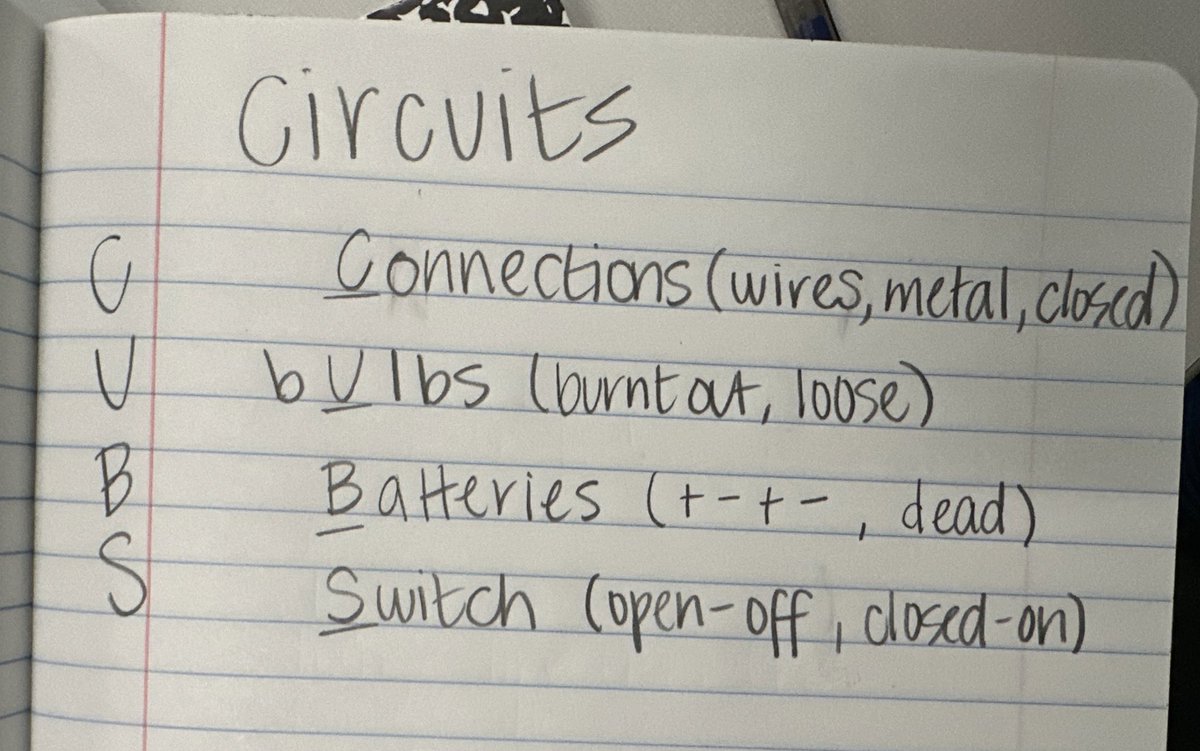 Circuits
C Connections (wires, metal, closed)
U bUlbs (burnt out, loose)
B Batteries (+-+-, dead)
S Switch (open-off, closed-on)